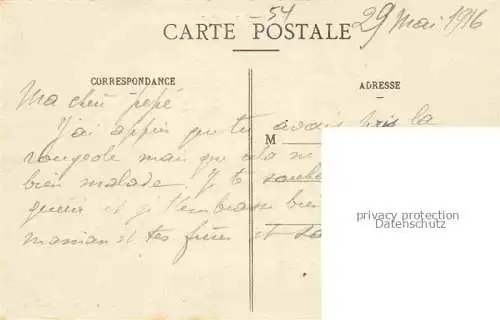 -54
29 Mai 1916
CARTE POSTALE
CORRESPONDANCE
ADRESSE
M
Ma cher pépé
J'ai appris que tu avais pris la
rougeole mais que cela
bien malade. Je te
guérir et je t'embrasse bien
maman et tes frères et
privacy protection
Datenschutz